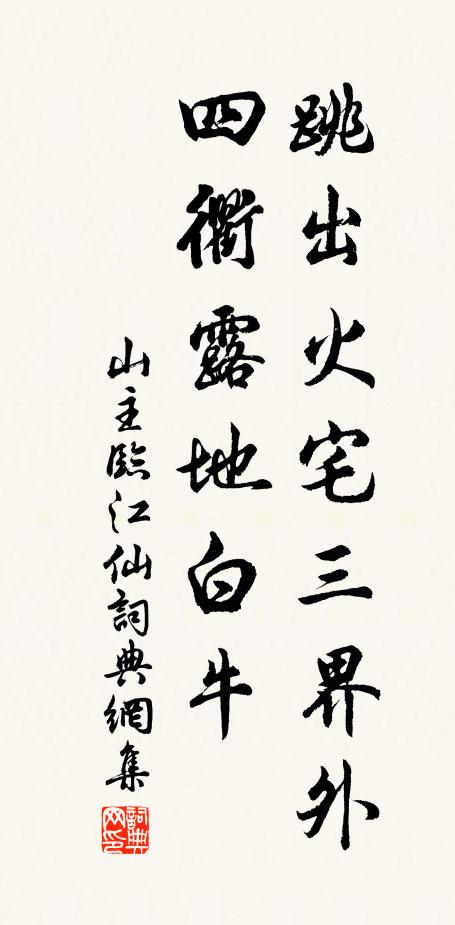 跳出火宅三界外
四衢露地白牛
山主臨江仙詞典網集
詞典网印